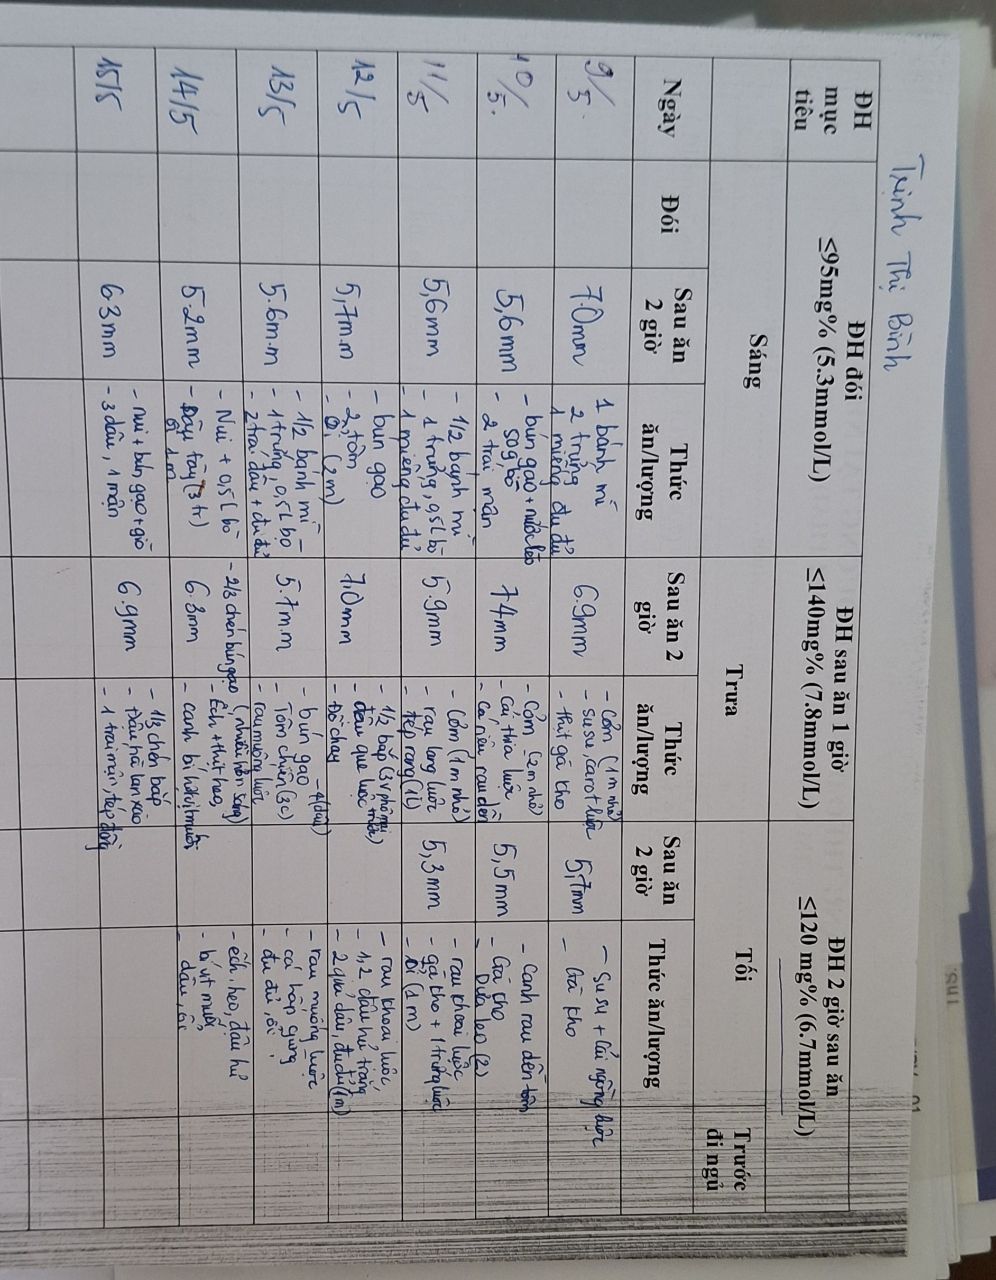 Trịnh Thị Bình
ĐH mục tiêu
ĐH đói
≤95mg% (5.3mmol/L)
ĐH sau ăn 1 giờ
≤140mg% (7.8mmol/L)
ĐH 2 giờ sau ăn
≤120 mg% (6.7mmol/L)
Sáng
Trưa
Tối
Trước đi ngủ
Ngày
Đói
Sau ăn 2 giờ
Thức ăn/lượng
Sau ăn 2 giờ
Thức ăn/lượng
Sau ăn 2 giờ
Thức ăn/lượng
9/5.
7.0mm
1 bánh mì
2 trứng
1 miếng đu đủ
6.9mm
- Cơm (1m nhỏ)
- su su, carot luộc
- thịt gà kho
5,7mm
- Su su + cải ngồng luộc
- Gà kho
10/5.
5,6mm
- bún gạo + nước lèo
50g bò
- 2 trái mận
7.4mm
- Cơm (2m nhỏ)
- Cá thìa luộc
- Canh riêu rau dền
5,5mm
- Canh rau dền tôm
- Gà kho
- Dưa leo (2)
11/5
5,6mm
- 1/2 bánh mì
- 1 trứng, 0,5L bò
- 1 miếng đu đủ
5.9mm
- Cơm (1m nhỏ)
- rau lang luộc
- tép rang (1L)
5,3mm
- rau khoai luộc
- gà kho + 1 trứng luộc
- ổi (1m)
12/5
5,7m.m
- bún gạo
- 2 tôm
- ổi (2m)
7,0mm
- 1/2 bắp
- đậu que luộc
- Đồ chay
- rau khoai luộc
- 1,2 đậu hủ trắng
- 2 quả dâu, đu đủ (1m)
13/5
5.6m.m
- 1/2 bánh mì
- 1 trứng, 0,5L bò
- 2 trái dâu + đu đủ
5.7m.m
- bún gạo
- Tôm chiên (3c)
- rau muống luộc
- rau muống luộc
- cá hấp gừng
- đu đủ, ổi
14/5
5.2mm
- Nui + 0,5L bò
- Dâu tây (3tr)
- ổi 1m
6.8mm
- 2/3 chén bún gạo
- Ếch + thịt heo
- canh bí
- ếch, heo, đậu hủ
- bí vịt muối
- dâu, ổi
15/5
6.3mm
- nui + bún gạo + giò
- 3 dâu, 1 mận
6.9mm
- 1/3 chén bắp
- Đậu hà lan xào
- 1 trái mận, tép đồng